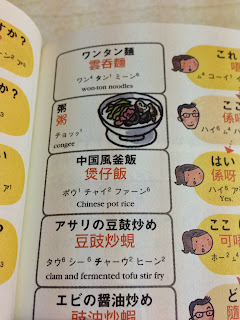 すか?
ワンタン麵
雲吞麵
ワン⁴ タン¹ ミーン⁶
won-ton noodles
粥
粥
チョッ¹
congee
中国風釜飯
煲仔飯
ボウ¹ チャイ² ファーン⁶
Chinese pot rice
アサリの豆鼓炒め
豆鼓炒蜆
タウ⁶ シー⁶ チャーウ² ヒーン²
clam and fermented tofu stir fry
エビの醤油炒め
豉油炒蝦
これ
係呀
ハイ⁶
はい
係呀
ハイ⁶
Yes.
ここ
ホー²